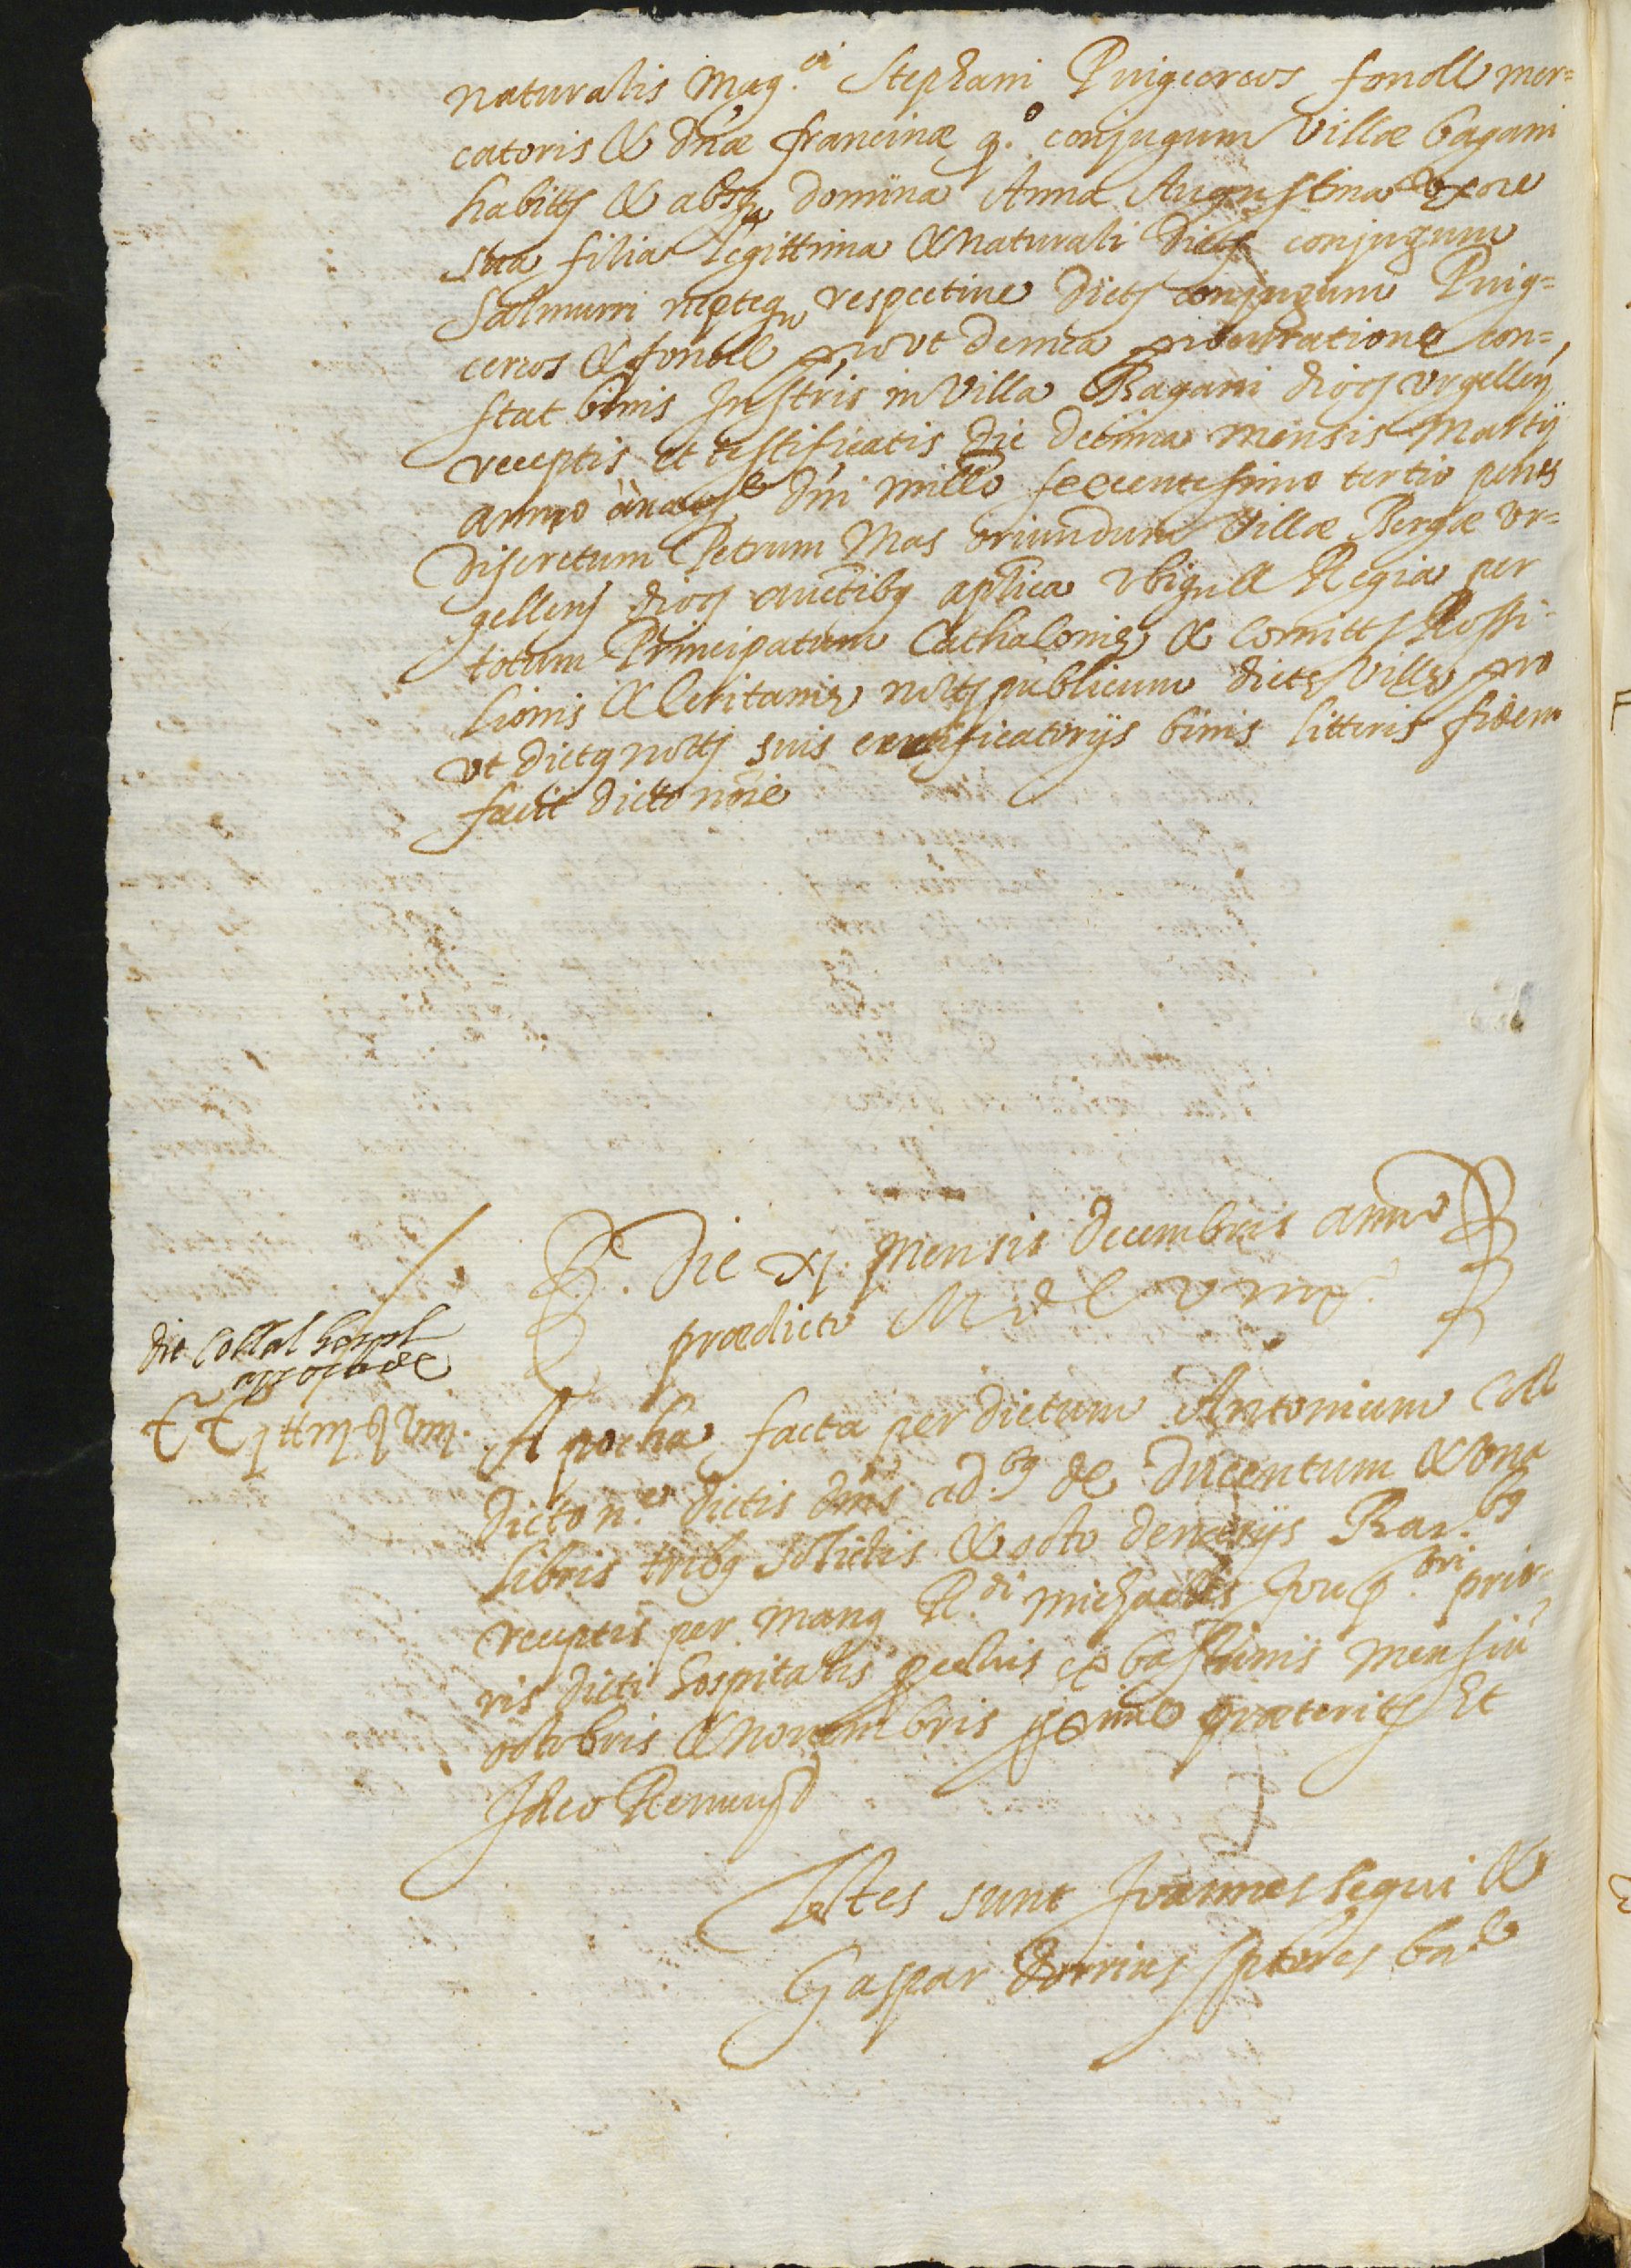 naturalis Mag.ci Stephani Puigcercos fonoll mer=
catoris & dnæ francinæ q.º conjugum Villæ bagani
habittz & absq domina Anna Augustina uxore
sua filia legittima & naturali dictz conjugum
Salmurri nepteq respective dictz conjugum Puig=
cercos & fonoll prout de mia procuratione con=
stat binis Instris in Villa Bagani diocs Urgellen
receptis et testificatis die decima mensis Martij
anno à natte dni millo sexcentesimo tertio penes
Discretum Petrum Mas oriundum Villæ Bergæ Ur=
gellens diocs auctibq aplica ubiq & Regia per
totum Principatum Cathaloniæ & Comittz Rossi-
lionis & Ceritaniæ nottz publicum dictæ Villæ pro
ut dictq nottz suis certificatorijs binis litteris fidem
facit dicto noie
Die xj. Mensis decembris anno
prædicto M d C
Apocha facta per dictum Antonium Coll
dicto n.e dictis dnis ad.bq de ducentum & una
libris tribq solidis & octo denarijs Bar.bq
receptis per manq R.di Michaelis Jou p.bri prio-
ris dicti hospitalis pecunijs et bastimis mensiu
octobris & Novembris pxime præteritz Et
Ideo Renun
Testes sunt Joannes Segui &
Gaspar Dorrius scptores ba.e